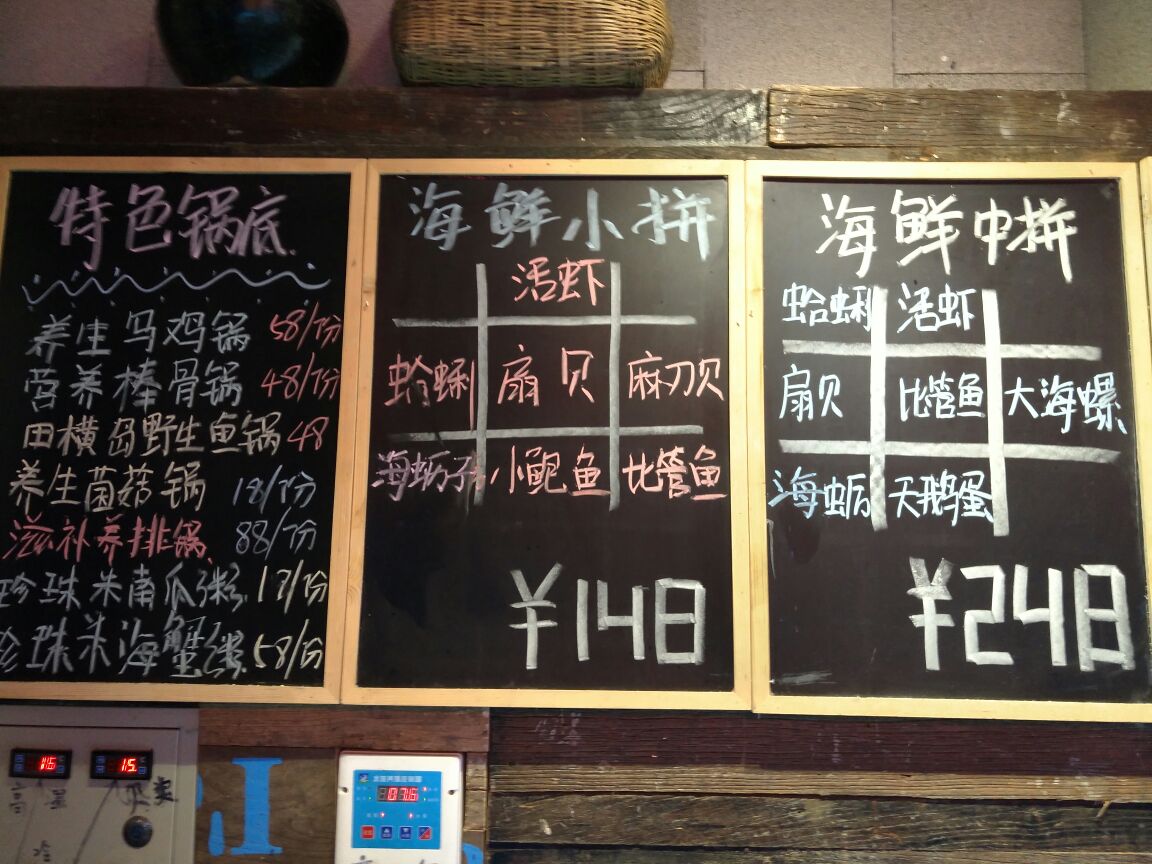 特色锅底
养生乌鸡锅 58/份
营养棒骨锅 48/份
田横岛野生鱼锅 48
养生菌菇锅 18/份
滋补养排锅 88/份
珍珠米南瓜粥 17/份
珍珠米海蟹粥 58/份
海鲜小拼
活虾
蛤蜊 扇贝 麻刀贝
海蛎子 小鲍鱼 比管鱼
¥148
海鲜中拼
蛤蜊 活虾
扇贝 比管鱼 大海螺
海蛎 天鹅蛋
¥248